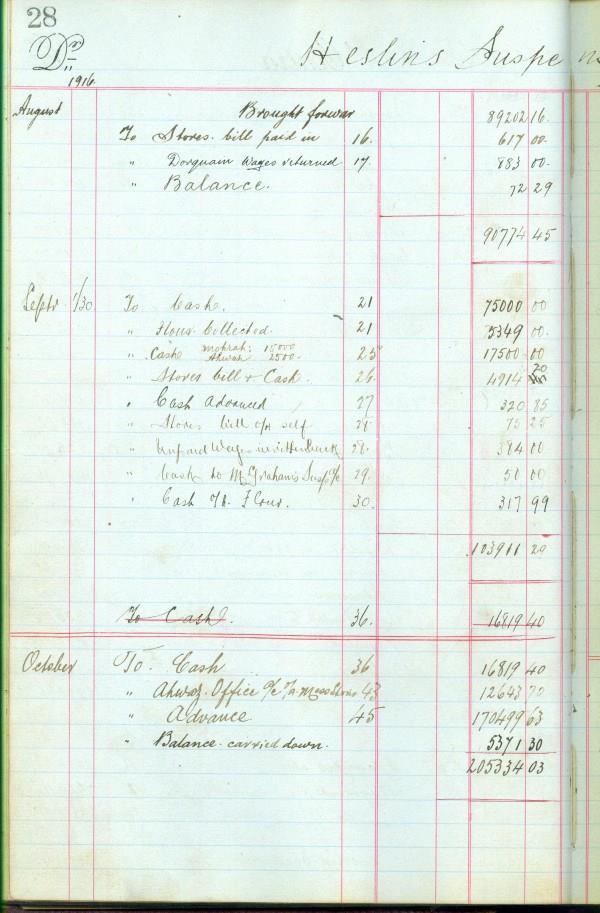 28
Dr
Heslins Suspe ns
1916
August Brought forwar 89202 16.
To Stores bill paid in 16. 617 00.
" Dorquain Wages returned 17. 883 00.
" Balance. 72 29
90774 45
Septr 1/30 To Cash. 21 75000 00
" Flour Collected. 21 5349 00.
" Cash Mohrah: 15000 Ahwaz 2500. 25 17500 00
" Stores bill & Cash. 26 4914 20
" Cash Advanced 27 320 85
" Stores bill o/n self 28 75 25
" Unpaid Wages written back 28. 384 00
" Cash to McGraham's Susp a/c 29. 50 00
" Cash o/a Flour. 30. 317 99
103911 29
To Cash. 36. 16819 40
October To Cash 36 16819 40
" Ahwaz Office a/c Mess Stores 43 12643 70
" Advance 45 170499 63
" Balance carried down. 5371 30
205334 03